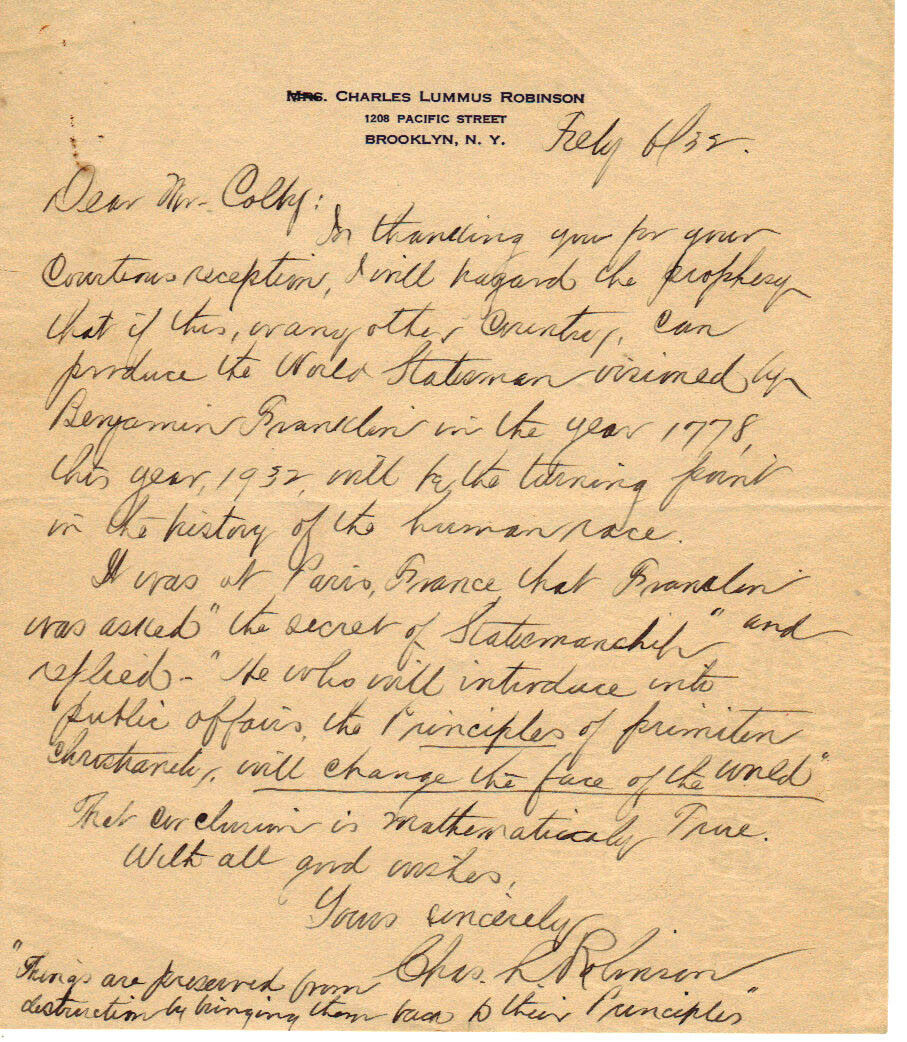 Mrs. Charles Lummus Robinson
1208 Pacific Street
Brooklyn, N. Y.
Feby 6/32.
Dear Mr. Colby:
In thanking you for your
Courteous reception, I will hazard the prophesy
that if this, or any other Country, can
produce the World Statesman visioned by
Benjamin Franklin in the year 1778,
this year, 1932, will be the turning point
in the history of the human race.
It was at Paris, France that Franklin
was asked "the secret of Statesmanship" and
replied - "He who will introduce into
public affairs, the Principles of primitive
Christianity, will change the face of the world"
That conclusion is mathematically True.
With all good wishes,
Yours sincerely
Chas. L. Robinson
"Things are preserved from
destruction by bringing them back to their Principles"